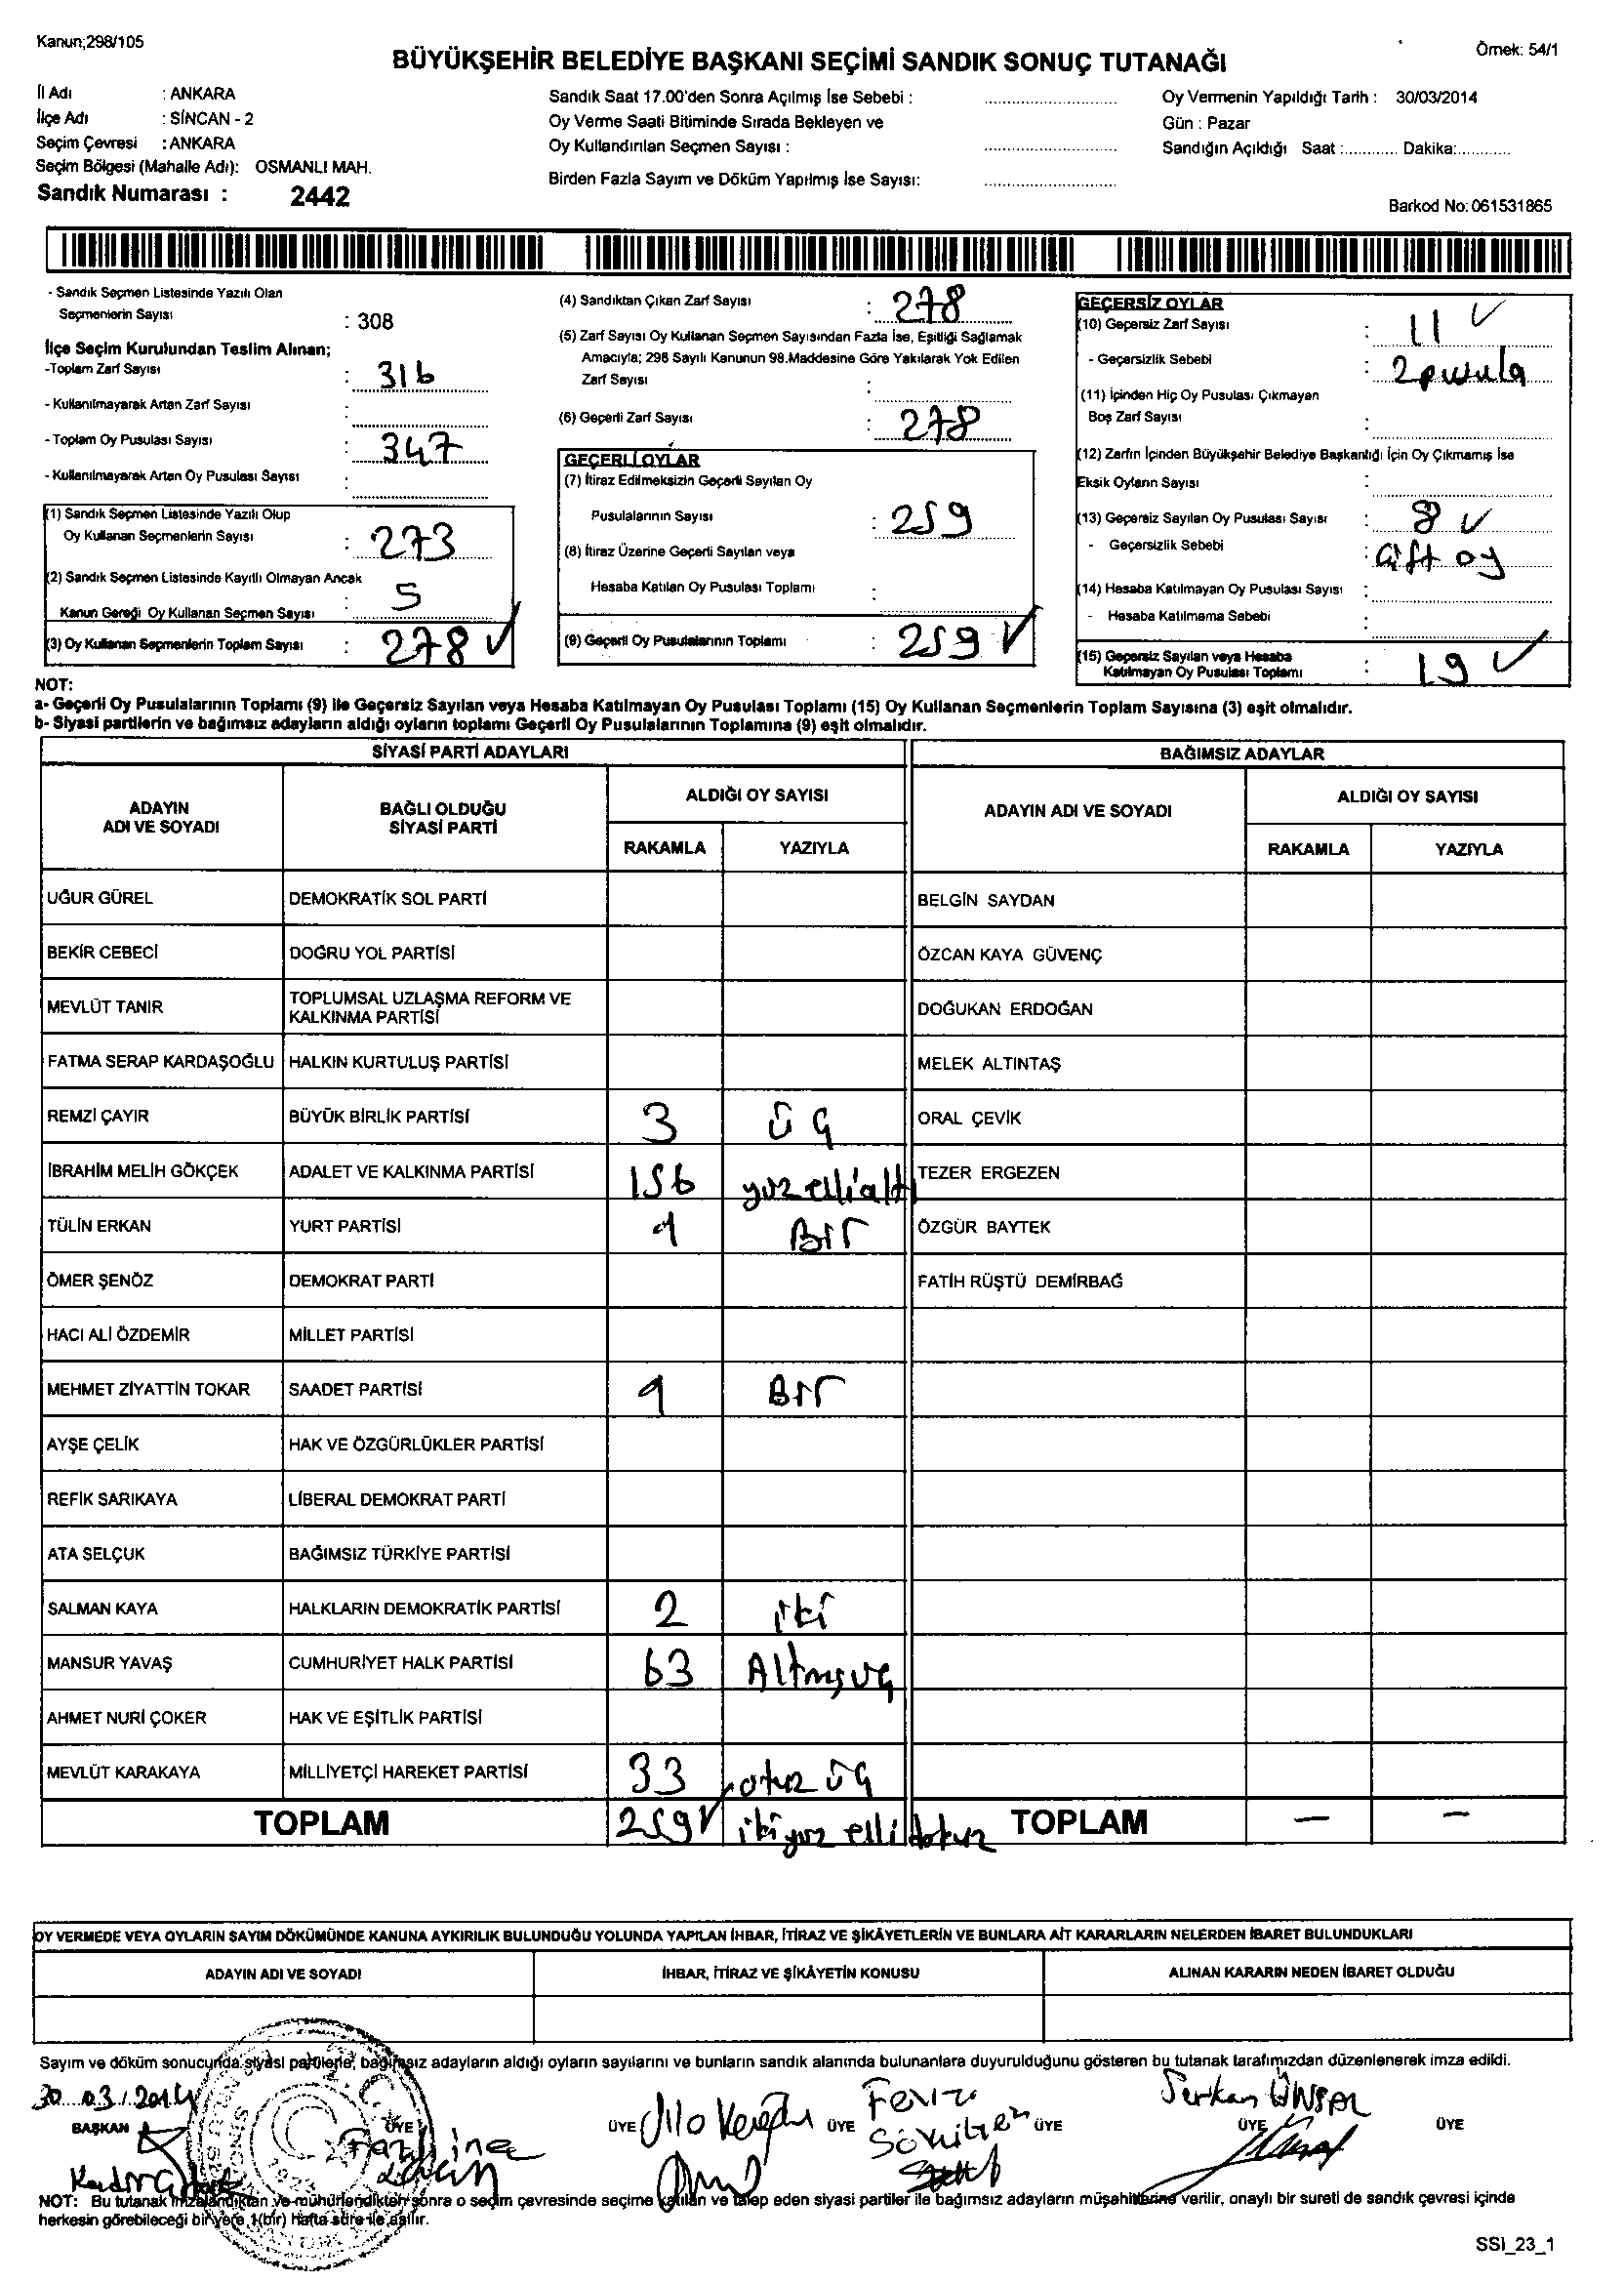 Kanun;298/105
Örnek: 54/1
BÜYÜKŞEHİR BELEDİYE BAŞKANI SEÇİMİ SANDIK SONUÇ TUTANAĞI
İl Adı : ANKARA
İlçe Adı : SİNCAN - 2
Seçim Çevresi : ANKARA
Seçim Bölgesi (Mahalle Adı): OSMANLI MAH.
Sandık Numarası : 2442
Sandık Saat 17.00'den Sonra Açılmış İse Sebebi :
Oy Verme Saati Bitiminde Sırada Bekleyen ve
Oy Kullandırılan Seçmen Sayısı :
Birden Fazla Sayım ve Döküm Yapılmış İse Sayısı:
Oy Vermenin Yapıldığı Tarih : 30/03/2014
Gün : Pazar
Sandığın Açıldığı Saat :............ Dakika:............
Barkod No: 061531865
- Sandık Seçmen Listesinde Yazılı Olan
Seçmenlerin Sayısı : 308
İlçe Seçim Kurulundan Teslim Alınan;
-Toplam Zarf Sayısı : 316
- Kullanılmayarak Artan Zarf Sayısı :
- Toplam Oy Pusulası Sayısı : 347
- Kullanılmayarak Artan Oy Pusulası Sayısı :
(1) Sandık Seçmen Listesinde Yazılı Olup
Oy Kullanan Seçmenlerin Sayısı : 273
(2) Sandık Seçmen Listesinde Kayıtlı Olmayan Ancak
Kanun Gereği Oy Kullanan Seçmen Sayısı : 5
(3) Oy Kullanan Seçmenlerin Toplam Sayısı : 278 ✓
(4) Sandıktan Çıkan Zarf Sayısı : 278
(5) Zarf Sayısı Oy Kullanan Seçmen Sayısından Fazla İse, Eşitliği Sağlamak
Amacıyla; 298 Sayılı Kanunun 98.Maddesine Göre Yakılarak Yok Edilen
Zarf Sayısı :
(6) Geçerli Zarf Sayısı : 278
GEÇERLİ OYLAR
(7) İtiraz Edilmeksizin Geçerli Sayılan Oy
Pusulalarının Sayısı : 259
(8) İtiraz Üzerine Geçerli Sayılan veya
Hesaba Katılan Oy Pusulası Toplamı :
(9) Geçerli Oy Pusulalarının Toplamı : 259 ✓
GEÇERSİZ OYLAR
(10) Geçersiz Zarf Sayısı : 11 ✓
- Geçersizlik Sebebi : 2 pusula
(11) İçinden Hiç Oy Pusulası Çıkmayan
Boş Zarf Sayısı :
(12) Zarfın İçinden Büyükşehir Belediye Başkanlığı İçin Oy Çıkmamış İse
Eksik Oyların Sayısı :
(13) Geçersiz Sayılan Oy Pusulası Sayısı : 8 ✓
- Geçersizlik Sebebi : Çift oy
(14) Hesaba Katılmayan Oy Pusulası Sayısı :
- Hesaba Katılmama Sebebi :
(15) Geçersiz Sayılan veya Hesaba
Katılmayan Oy Pusulası Toplamı : 19 ✓
NOT:
a- Geçerli Oy Pusulalarının Toplamı (9) ile Geçersiz Sayılan veya Hesaba Katılmayan Oy Pusulası Toplamı (15) Oy Kullanan Seçmenlerin Toplam Sayısına (3) eşit olmalıdır.
b- Siyasi partilerin ve bağımsız adayların aldığı oyların toplamı Geçerli Oy Pusulalarının Toplamına (9) eşit olmalıdır.
SİYASİ PARTİ ADAYLARI
BAĞIMSIZ ADAYLAR
ADAYIN ADI VE SOYADI
BAĞLI OLDUĞU SİYASİ PARTİ
ALDIĞI OY SAYISI
RAKAMLA YAZIYLA
ADAYIN ADI VE SOYADI
ALDIĞI OY SAYISI
RAKAMLA YAZIYLA
UĞUR GÜREL DEMOKRATİK SOL PARTİ BELGİN SAYDAN
BEKİR CEBECİ DOĞRU YOL PARTİSİ ÖZCAN KAYA GÜVENÇ
MEVLÜT TANIR TOPLUMSAL UZLAŞMA REFORM VE KALKINMA PARTİSİ DOĞUKAN ERDOĞAN
FATMA SERAP KARDAŞOĞLU HALKIN KURTULUŞ PARTİSİ MELEK ALTINTAŞ
REMZİ ÇAYIR BÜYÜK BİRLİK PARTİSİ 3 üç ORAL ÇEVİK
İBRAHİM MELİH GÖKÇEK ADALET VE KALKINMA PARTİSİ 156 yüz elli altı TEZER ERGEZEN
TÜLİN ERKAN YURT PARTİSİ 1 Bir ÖZGÜR BAYTEK
ÖMER ŞENÖZ DEMOKRAT PARTİ FATİH RÜŞTÜ DEMİRBAĞ
HACI ALİ ÖZDEMİR MİLLET PARTİSİ
MEHMET ZİYATTİN TOKAR SAADET PARTİSİ 1 Bir
AYŞE ÇELİK HAK VE ÖZGÜRLÜKLER PARTİSİ
REFİK SARIKAYA LİBERAL DEMOKRAT PARTİ
ATA SELÇUK BAĞIMSIZ TÜRKİYE PARTİSİ
SALMAN KAYA HALKLARIN DEMOKRATİK PARTİSİ 2 iki
MANSUR YAVAŞ CUMHURİYET HALK PARTİSİ 63 Altmışüç
AHMET NURİ ÇOKER HAK VE EŞİTLİK PARTİSİ
MEVLÜT KARAKAYA MİLLİYETÇİ HAREKET PARTİSİ 33 otuz üç
TOPLAM 259 ✓ ikiyüz elli dokuz TOPLAM — —
OY VERMEDE VEYA OYLARIN SAYIM DÖKÜMÜNDE KANUNA AYKIRILIK BULUNDUĞU YOLUNDA YAPILAN İHBAR, İTİRAZ VE ŞİKÂYETLERİN VE BUNLARA AİT KARARLARIN NELERDEN İBARET BULUNDUKLARI
ADAYIN ADI VE SOYADI İHBAR, İTİRAZ VE ŞİKÂYETİN KONUSU ALINAN KARARIN NEDEN İBARET OLDUĞU
Sayım ve döküm sonucunda siyasi partilerle, bağımsız adayların aldığı oyların sayılarını ve bunların sandık alanında bulunanlara duyurulduğunu gösteren bu tutanak tarafımızdan düzenlenerek imza edildi.
30.03.2014
Serkan ÜNSAL
BAŞKAN ÜYE ÜYE ÜYE ÜYE ÜYE ÜYE
NOT: Bu tutanak imzalandıktan ve mühürlendikten sonra o seçim çevresinde seçime katılan ve talep eden siyasi partiler ile bağımsız adayların müşahitlerine verilir, onaylı bir sureti de sandık çevresi içinde
herkesin görebileceği bir yere 1(bir) hafta süre ile asılır.
SSI_23_1